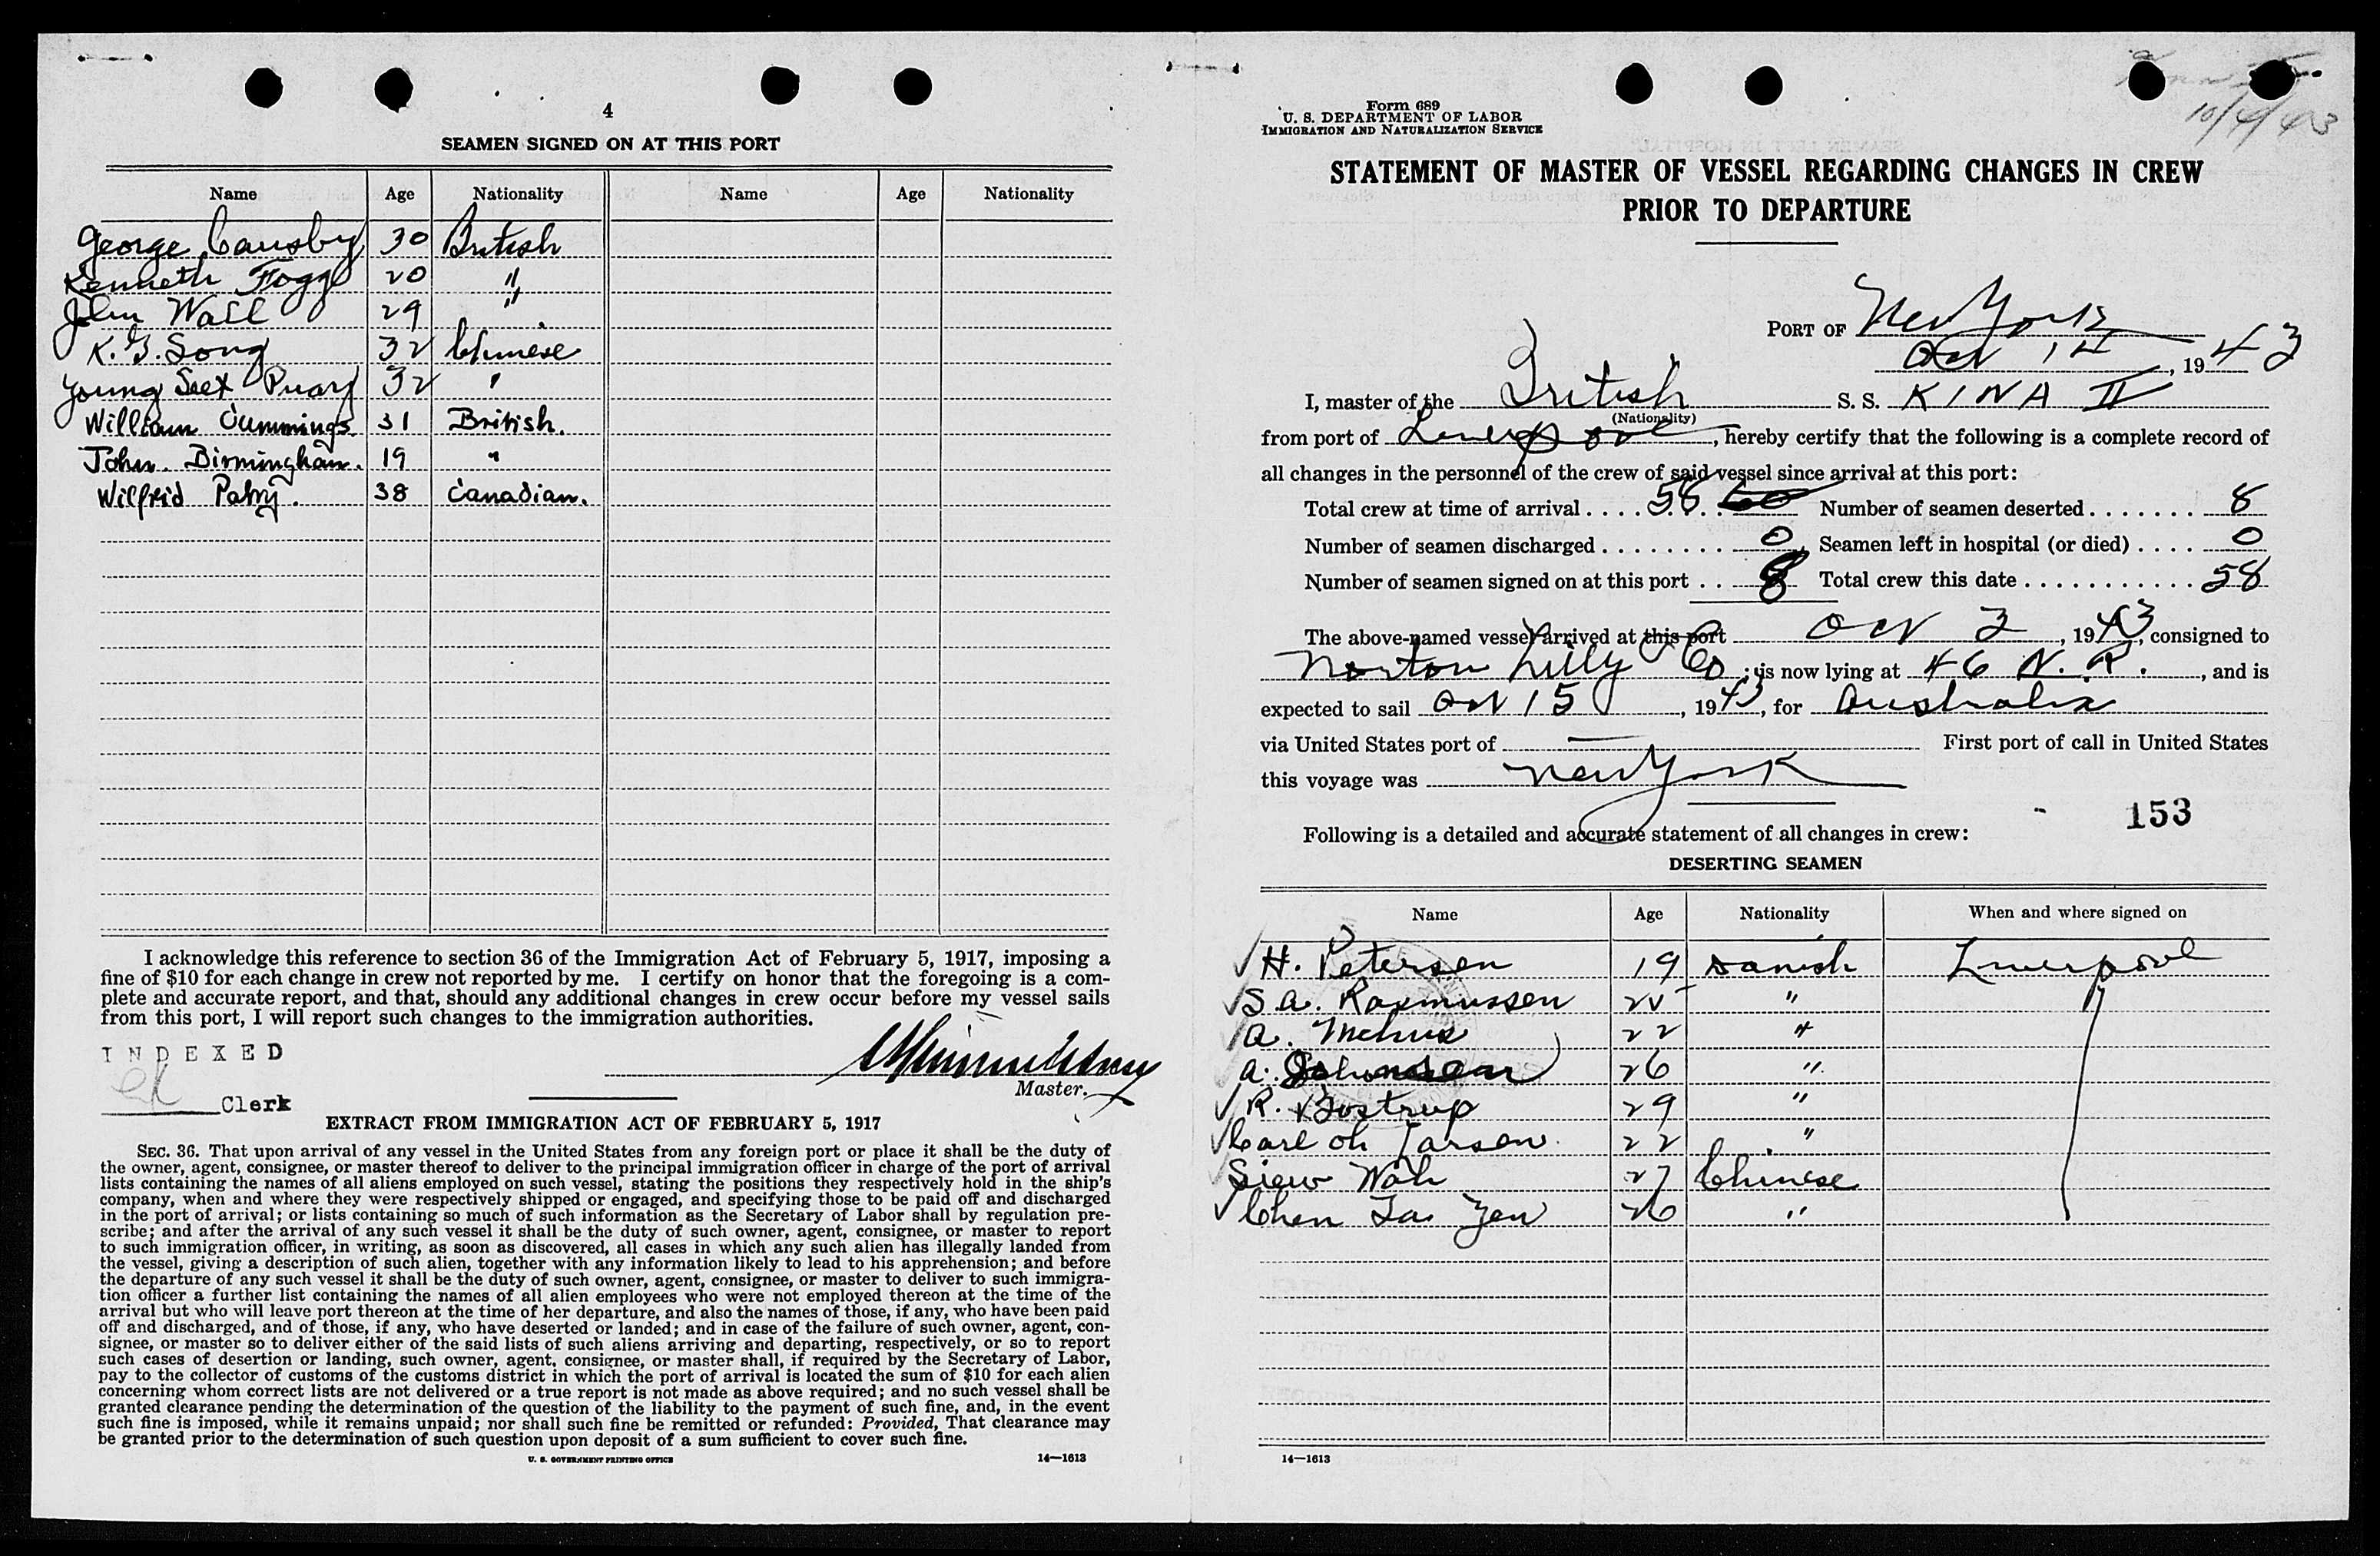 4
SEAMEN SIGNED ON AT THIS PORT
Name Age Nationality Name Age Nationality
George Cansby 30 British
Kenneth Fogg 20 "
John Wall 29 "
K. G. Song 32 Chinese
Young Seet 32 "
William Cummings 31 British.
John. Birmingham. 19 "
Wilfrid 38 Canadian.
I acknowledge this reference to section 36 of the Immigration Act of February 5, 1917, imposing a
fine of $10 for each change in crew not reported by me. I certify on honor that the foregoing is a com-
plete and accurate report, and that, should any additional changes in crew occur before my vessel sails
from this port, I will report such changes to the immigration authorities.
INDEXED
Master.
Clerk
EXTRACT FROM IMMIGRATION ACT OF FEBRUARY 5, 1917
SEC. 36. That upon arrival of any vessel in the United States from any foreign port or place it shall be the duty of
the owner, agent, consignee, or master thereof to deliver to the principal immigration officer in charge of the port of arrival
lists containing the names of all aliens employed on such vessel, stating the positions they respectively hold in the ship's
company, when and where they were respectively shipped or engaged, and specifying those to be paid off and discharged
in the port of arrival; or lists containing so much of such information as the Secretary of Labor shall by regulation pre-
scribe; and after the arrival of any such vessel it shall be the duty of such owner, agent, consignee, or master to report
to such immigration officer, in writing, as soon as discovered, all cases in which any such alien has illegally landed from
the vessel, giving a description of such alien, together with any information likely to lead to his apprehension; and before
the departure of any such vessel it shall be the duty of such owner, agent, consignee, or master to deliver to such immigra-
tion officer a further list containing the names of all alien employees who were not employed thereon at the time of the
arrival but who will leave port thereon at the time of her departure, and also the names of those, if any, who have been paid
off and discharged, and of those, if any, who have deserted or landed; and in case of the failure of such owner, agent, con-
signee, or master so to deliver either of the said lists of such aliens arriving and departing, respectively, or so to report
such cases of desertion or landing, such owner, agent, consignee, or master shall, if required by the Secretary of Labor,
pay to the collector of customs of the customs district in which the port of arrival is located the sum of $10 for each alien
concerning whom correct lists are not delivered or a true report is not made as above required; and no such vessel shall be
granted clearance pending the determination of the question of the liability to the payment of such fine, and, in the event
such fine is imposed, while it remains unpaid; nor shall such fine be remitted or refunded: Provided, That clearance may
be granted prior to the determination of such question upon deposit of a sum sufficient to cover such fine.
U. S. GOVERNMENT PRINTING OFFICE 14—1613
10/4/43
Form 689
U. S. DEPARTMENT OF LABOR
IMMIGRATION AND NATURALIZATION SERVICE
STATEMENT OF MASTER OF VESSEL REGARDING CHANGES IN CREW
PRIOR TO DEPARTURE
PORT OF New York
Oct 14, 1943
I, master of the British S. S. KINA II
(Nationality)
from port of Liverpool, hereby certify that the following is a complete record of
all changes in the personnel of the crew of said vessel since arrival at this port:
Total crew at time of arrival . . . . 58 60 Number of seamen deserted . . . . . . . 8
Number of seamen discharged . . . . . . . . 0 Seamen left in hospital (or died) . . . . 0
Number of seamen signed on at this port . . 8 Total crew this date . . . . . . . . . . . 58
The above-named vessel arrived at this port Oct 2, 1943, consigned to
Norton Lilly & Co; is now lying at 46 N. R., and is
expected to sail Oct 15, 1943, for Australia
via United States port of — First port of call in United States
this voyage was New York
153
Following is a detailed and accurate statement of all changes in crew:
DESERTING SEAMEN
Name Age Nationality When and where signed on
H. Petersen 19 Danish Liverpool
S. A. Rasmussen "
A. 22 "
A. 26 "
R. Bostrup 29 "
Carl 22 "
Siew Wah 27 Chinese
Chen 26 "
14—1613